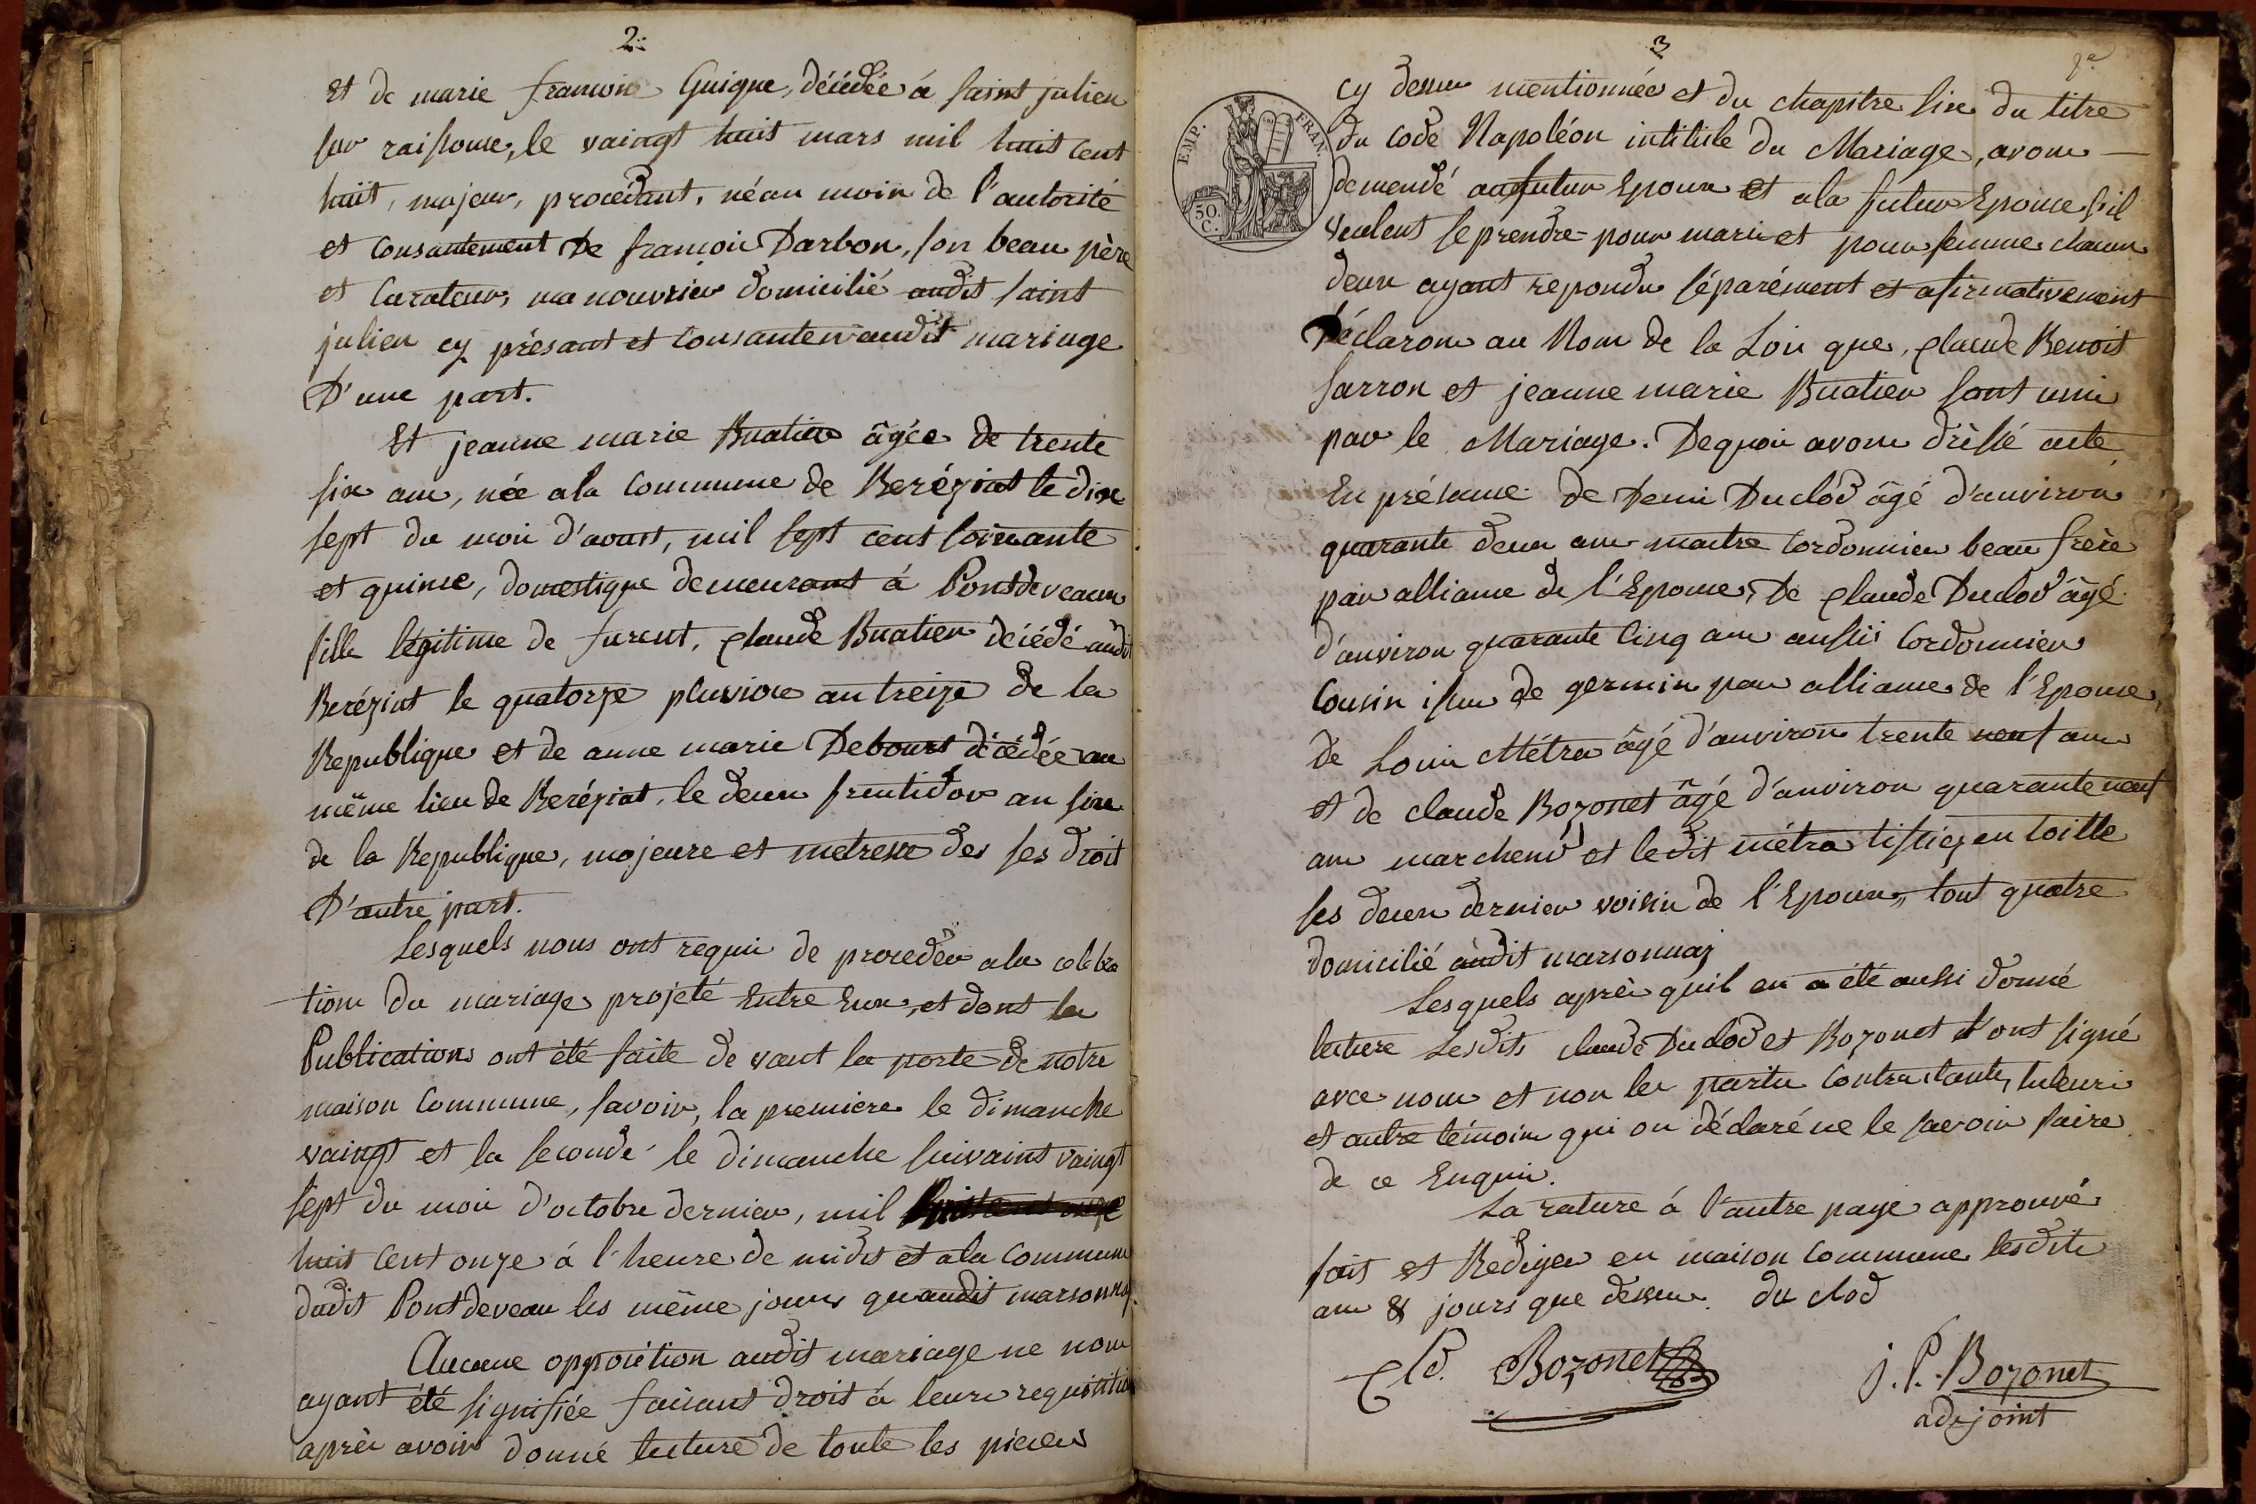 2
et de marie francoise Guigue, décédée á saint julien
sur raissouse, le vaingt huit mars mil huit cent
huit, majeur, procédant, néan moin de l'autorité
et consantement De francois Darbon, son beau père
et Curateur, manouvrier domicilié audit saint
julien cy présant et consanten audit mariage
D'une part.
Et jeanne marie Buatier âgée de trente
six ans, née a la Commune de Beréziat le dix
sept du mois d'aoust, mil sept cent soixante
et quinze, domestique demeurant á Pontdeveaux
fille légitime de furent, Claude Buatier décédé audit
Beréziat le quatorze pluviose an treize de la
Republique et de anne marie Debourt décédée au
même lieu de Beréziat, le deux fructidor an six
de la Republique, majeure et metresse des ses droit
D'autre part.
Lesquels nous ont requis de proceder a la celebra
tions du mariage projeté Entre Eux, et dont les
Publications ont été faite de vant la porte de notre
maison Commune, savoir, la premiere le dimanche
vaingt et la seconde le dimanche suivaint vaingt
sept du mois d'octobre dernier, mil
huit cent onze á l'heure de midis et a la Commune
dudit Pontdeveau les même jours qu'audit marsonnaz
Aucune opposition audit mariage ne nous
ayant été signifiée faisant droit á leurs requisition
après avoir donné lecture de toute les pieces
3
EMP. FRAN.
50.
C.
cy dessus mentionnées et du chapitre six du titre
du Code Napoléon intitule du Mariage, avons
demendé au futur Epoux et a la futur Epouse s'il
veulent se prendre pour mari et pour femme chacun
deux ayant repondu séparément et afirmativement
Déclarons au Nom de la Loix que, Claude Benoit
Sarron et jeanne marie Buatier sont unis
par le Mariage. De quoi avons dréssé acte
En présance de Denis Duclod âgé d'anviron
quarante deux ans maitre Cordonnier beau frère
par alliance de l'Epouse, De Claude Duclod âgé
d'anviron quarante cinq ans aussi Cordonnier
Cousin issus de germin par alliance de l'Epouse,
de Louis Métra âgé d'anviron trente neuf ans
et de claude Bozonet âgé d'anviron quarante neuf
ans marchend et ledit métra tissier en toille
les deux dernier voisin de l'Epoux, tout quatre
domicilié audit marsonnaz
Lesquels après qu'il en a été aussi donné
lecture Lesdits claude Duclod et Bozonet l'ont signé
avec nous et non les partis Contractante, tuleurs
et autre témoins qui on déclaré ne le savoir faire
de ce Enquis.
La rature á l'autre page approuvé
fait et Rediger en maison Commune lesdits
ans & jours que dessus. du clod
Cld. Bozonet
j. P. Bozonet
adejoint